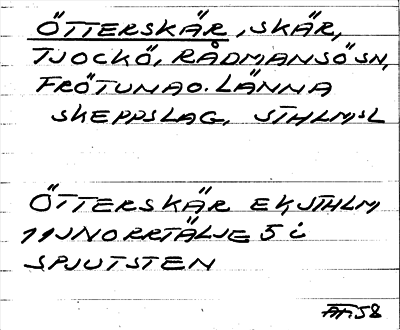 ÖTTERSKÄR, SKÄR,
TJOCKÖ, RÅDMANSÖSN,
FRÖTUNA O. LÄNNA
SKEPPSLAG, STHLMSL
ÖTTERSKÄR EK, STHLM
11J NORRTÄLJE 5 i
SPJUTSTEN
58